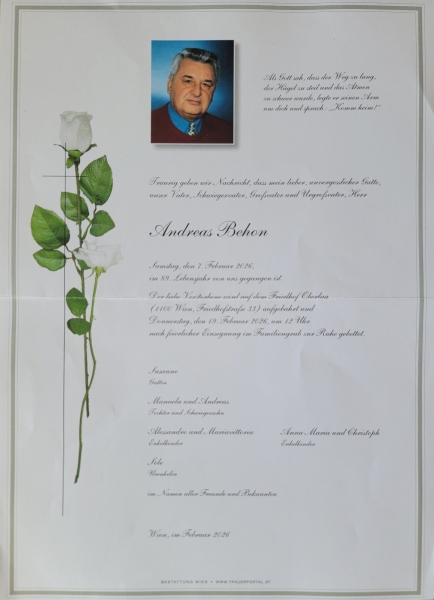 Als Gott sah, dass der Weg zu lang,
der Hügel zu steil und das Atmen
zu schwer wurde, legte er seinen Arm
um dich und sprach: „Komm heim!"
Traurig geben wir Nachricht, dass mein lieber, unvergesslicher Gatte,
unser Vater, Schwiegervater, Großvater und Urgroßvater, Herr
Andreas Behon
Samstag, den 7. Februar 2026,
im 89. Lebensjahr von uns gegangen ist.
Der liebe Verstorbene wird auf dem Friedhof Oberlaa
(1100 Wien, Friedhofstraße 33) aufgebahrt und
Donnerstag, den 19. Februar 2026, um 12 Uhr
nach feierlicher Einsegnung im Familiengrab zur Ruhe gebettet.
Susanne
Gattin
Manuela und Andreas
Tochter und Schwiegersohn
Alessandro und Mariavittoria
Enkelkinder
Anna Maria und Christoph
Enkelkinder
Urenkelin
im Namen aller Freunde und Bekannten
Wien, im Februar 2026
BESTATTUNG WIEN • WWW.TRAUERPORTAL.AT